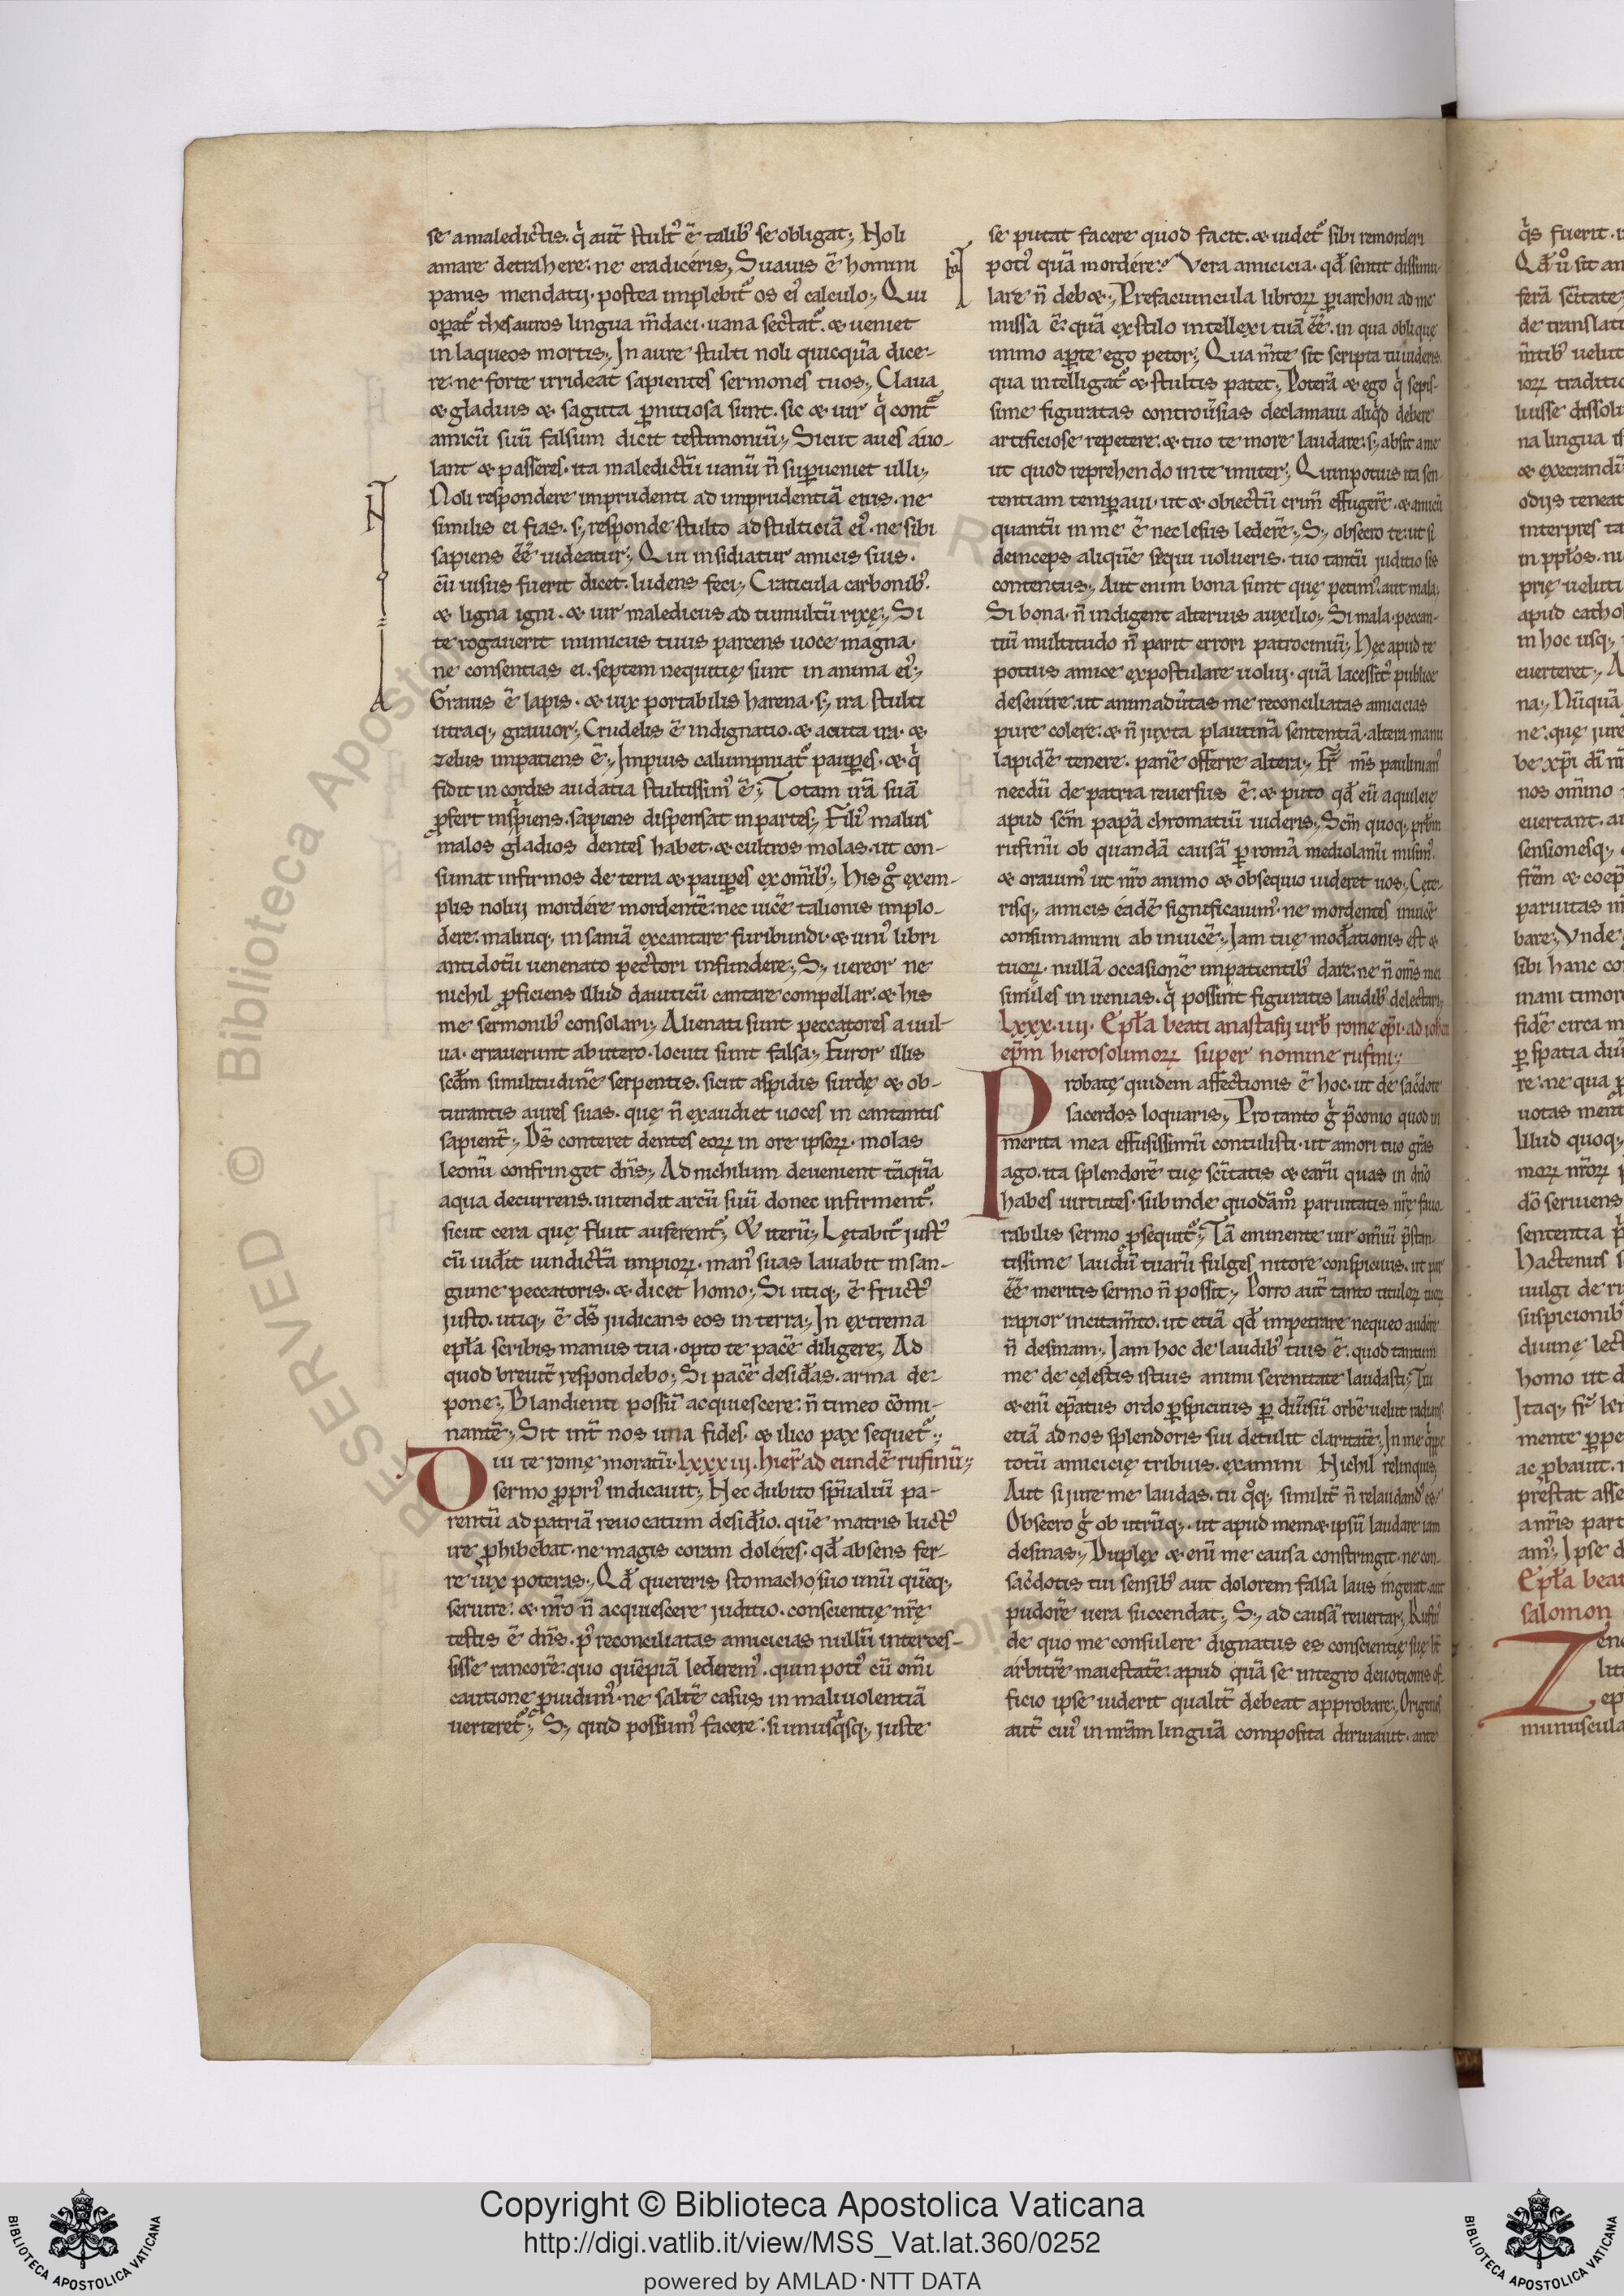 se a maledictis. q̍ aut̄ stultꝰ ē talibꝰ se obligat; Noli
amare detrahere: ne eradicéris; Suauis ē homini
panis mendatij. postea implebit᷑ os eiꝰ calculo; Qui
oꝑat᷑ thesauros lingua m̄daci. uana sectat᷑. & ueniet
in laqueos mortis; In aure stulti noli quicquā dice-
re: ne forte irrideat sapientes sermones tuos; Claua
& gladius & sagitta ꝑnitiosa sunt. sic & uir q̍ cont᷑
amicū suū falsum dicit testimoniū; Sicut aues áuo-
lant & passeres. ita maledictū uanū n̄ suꝑueniet ulli;
Noli respondere imprudenti ad imprudentiā eius. ne
similis ei fias. s; responde stulto ad stulticiā eiꝰ. ne sibi
sapiens ēē uideatur; Qui insidiatur amicis suis.
cū uisus fuerit dicet. ludens feci; Craticula carbonibꝰ.
& ligna igni. & uir maledicus ad tumultū rixę; Si
te rogauerit inimicus tuus parcens uoce magna.
ne consentias ei. septem nequitię sunt in anima eiꝰ;
Grauis ē lapis. & uix portabilis harena. s; ira stulti
utraq; grauior; Crudelis ē indignatio. & acuta ira. &
zelus impatiens ē; Impius calumpniat᷑ pauꝑes. & q̍
fidit in cordis audatia stultissimꝰ ē; Totam irā suā
ꝓfert insp̍iens. sapiens dispensat in partes; Filiꝰ malus
malos gladios dentes habet. & cultros molas. ut con-
sumat infirmos de terra & pauꝑes ex om̄ibꝰ; His g̊ exem-
plis nolui mordére mordentē: nec uicē talionis implo-
dere: malui q; insaniā excantare furibundi. & uniꝰ libri
antidotū uenenato pectori infundere; S; uereor ne
nichil ꝓficiens illud dauiticū cantare compellar: & his
me sermonibꝰ consolari; Alienati sunt peccatores a uul-
ua. errauerunt ab utero. locuti sunt falsa; Furor illis
scdm̄ similitudinē serpentis. sicut aspidis surdę & ob-
turantis aures suas. quę n̄ exaudiet uoces in cantantis
sapient̄; Ds̄ conteret dentes eoꝝ in ore ipsoꝝ. molas
leonū confringet dn̄s; Ad nichilum deuenient tāquā
aqua decurrens. intendit arcū suū donec infirment᷑.
sicut cera quę fluit auferent᷑; & iterū; Lętabit᷑ justꝰ
cū uid̄it uindictā impioꝝ. manꝰ suas lauabit in san-
guine peccatoris. & dicet homo; Si utiq; ē fructꝰ
justo. utiq; ē ds̄ judicans eos in terra; In extrema
epl̄a scribis manus tua. opto te pacē diligere; Ad
quod breuit̄ respondebo; Si pacē desid̄as. arma de-
pone; Blandienti possū acquiescere: n̄ timeo cōmi-
nantē; Sit int̄ nos una fides. & ilico pax sequet᷑;
Diu te romę moratū. Lxxxiij. hier̄ ad eundē rufinū;
sermo ꝓpriꝰ indicauit; Nec dubito sp̄ualiū pa-
rentū ad patriā reuocatum desid̄io. quē matris luctꝰ
ire ꝓhibebat. ne magis coram doléres. qd̄ absens fer-
re uix poteras; Qd̄ quereris stomacho suo unū quēq;
seruire. & nr̄o n̄ acquiescere juditio. conscientię nr̄ę
testis ē dn̄s. pꝰ reconciliatas amicicias nullū interces-
sisse rancorē: quo quēpiā lederemꝰ. quin potiꝰ cū om̄i
cautione ꝓuidimꝰ. ne saltē casus in maliuolentiā
uerteret᷑; S; quid possumꝰ facere. si unusq̍sq; juste
se putat facere quod facit. & uidet᷑ sibi remorderi
potiꝰ quā mordére? Vera amicicia. qd̄ sentit dissimu-
lare n̄ deb&; Prefaciuncula libroꝝ ꝑiarchon ad me
missa ē: quā ex stilo intellexi tuā ēē. in qua oblique
immo aꝑte ego petor; Qua m̄te sit scripta tu uideris.
qua intelligat᷑ & stultis patet; Poterā & ego q̍ sepis-
sime figuratas controūsias declamaui aliq̍d debere
artificiose repetere. & tuo te more laudare: s; absit a me
ut quod reprehendo in te imiter; Quin potius ita sen-
tentiam temꝑaui. ut & obiectū crim̄ effugerē. & amicū
quantū in me ē nec lesus lederē; S; obsecro te: ut si
deinceps aliquē sequi uolueris. tuo tantū juditio sis
contentus; Aut enim bona sunt quę petimꝰ. aut mala;
Si bona. n̄ indigent alterius auxilio; Si mala. peccan-
tiū multitudo n̄ parit errori patrociniū; Hęc apud te
potius amice expostulare uolui. quā lacessitꝰ publice
deseuire. ut animad̄utas me reconciliatas amicicias
pure colere. & n̄ juxta plautinā sententiā. altera manu
lapidē tenere. panē offerre altera; Fr̄ m̄s paulinianꝰ
necdū de patria reuersus ē. & puto qd̄ eū aquileię
apud scm̄ papā chromatiū uideris; Scm̄ quoq; prb̄m
rufinū ob quandā causā ꝑ romā mediolanū misimꝰ.
& orauimꝰ ut nr̄o animo & obsequio uideret uos; Cęte-
risq; amicis éadē significauimꝰ. ne mordentes inuicē
consumamini ab inuicē; Iam tuę mod̄ationis est &
tuoꝝ. nullā occasionē impatientibꝰ dare: ne n̄ om̄s mei
similes inuenias. q̍ possint figuratis laudibꝰ delectari;
Lxxx.iiij. Epl̄a beati anastasij urb̄ rome ep̄i. ad ioh̄
ep̄m hierosolimoꝝ super nomine rufini;
Probatę quidem affectionis ē hoc. ut de sac̄dote
sacerdos loquaris; Pro tanto g̍ p̄conio quod in
merita mea effusissimū contulisti. ut amori tuo grās
ago. ita splendorē tuę sc̄itatis & earū quas in dn̄o
habes uirtutes. subinde quodām̊ paruitatis nr̄ę fauo-
rabilis sermo ꝓsequit᷑; Tā eminente uir om̄iū p̄stan-
tissime laudū tuarū fulges nitore conspicuus. ut par
ēē meritis sermo n̄ possit; Porro aut̄ tanto tituloꝝ tuoꝝ
rapior incitam̄to. ut etiā qd̄ impetrare nequeo audere
n̄ desinam; Iam hoc de laudibꝰ tuis ē. quod tantum
me de cęlestis istius animi serenitate laudasti; Tui
& enī ep̄atus ordo ꝑspicuus ꝑ diūsū orbē uelut radiūs
etiā ad nos splendoris sui detulit claritatē; In me q̍ppe
totū amicicię tribuis. examini Nichil relinquis;
Aut si jure me laudas. tu q̊q; similit̄ n̄ relaudandꝰ es?
Obsecro g̍ ob utrūq; ut apud mem& ipsū laudare iam
desinas; Duplex & enī me causa constringit. ne con-
sac̄dotis tui sensibꝰ aut dolorem falsa laus ingerat. aut
pudorē uera succendat; S; ad causā reuertar; Rufinꝰ
de quo me consulere dignatus es conscientię suę ht̄
arbitrē maiestatē: apud quā se integro deuotionis of-
ficio ipse uiderit qualit̄ debeat approbare; Origenes
aut̄ cuiꝰ in nr̄am linguā composita diriuauit. ante
q̍s fuerit.
Qd̄ ů sit an
ferā sc̄itate
de translati
m̄tibꝰ uelut
ioꝝ traditio
luisse dissolu
na lingua is
& execrandū
odijs teneat
interpres ta
in ppl̄os. nu
prię ueluti
apud cathol
in hoc usq;
euerteret; A
na; Nūquā
ne: quę jure
be xp̄i di̅
nos om̄ino
euertant. au
sensionesq;
frēm & coep
paruitas
bare; Vnde
sibi hanc co
mani timor
fidē circa m
ꝑ spatia diū
re: ne qua p
uotas ment
Illud quoq;
moꝝ nr̄oꝝ
dō seruiens
sententia
hactenus s
uulgi de ru
suspicionibꝰ
diuinę lect
homo ut d
Itaq; fr̄
mente ꝑpe
ac ꝓbauit.
prestat asse
a nr̄is part
amꝰ; Ipse d
Epl̄a beat
salomon
Zeno
liti
ep
munuscula
RESERVED © Biblioteca Apostolica
Copyright © Biblioteca Apostolica Vaticana
http://digi.vatlib.it/view/MSS_Vat.lat.360/0252
powered by AMLAD·NTT DATA
BIBLIOTECA APOSTOLICA VATICANA
BIBLIOTECA APOSTOLICA VATICANA